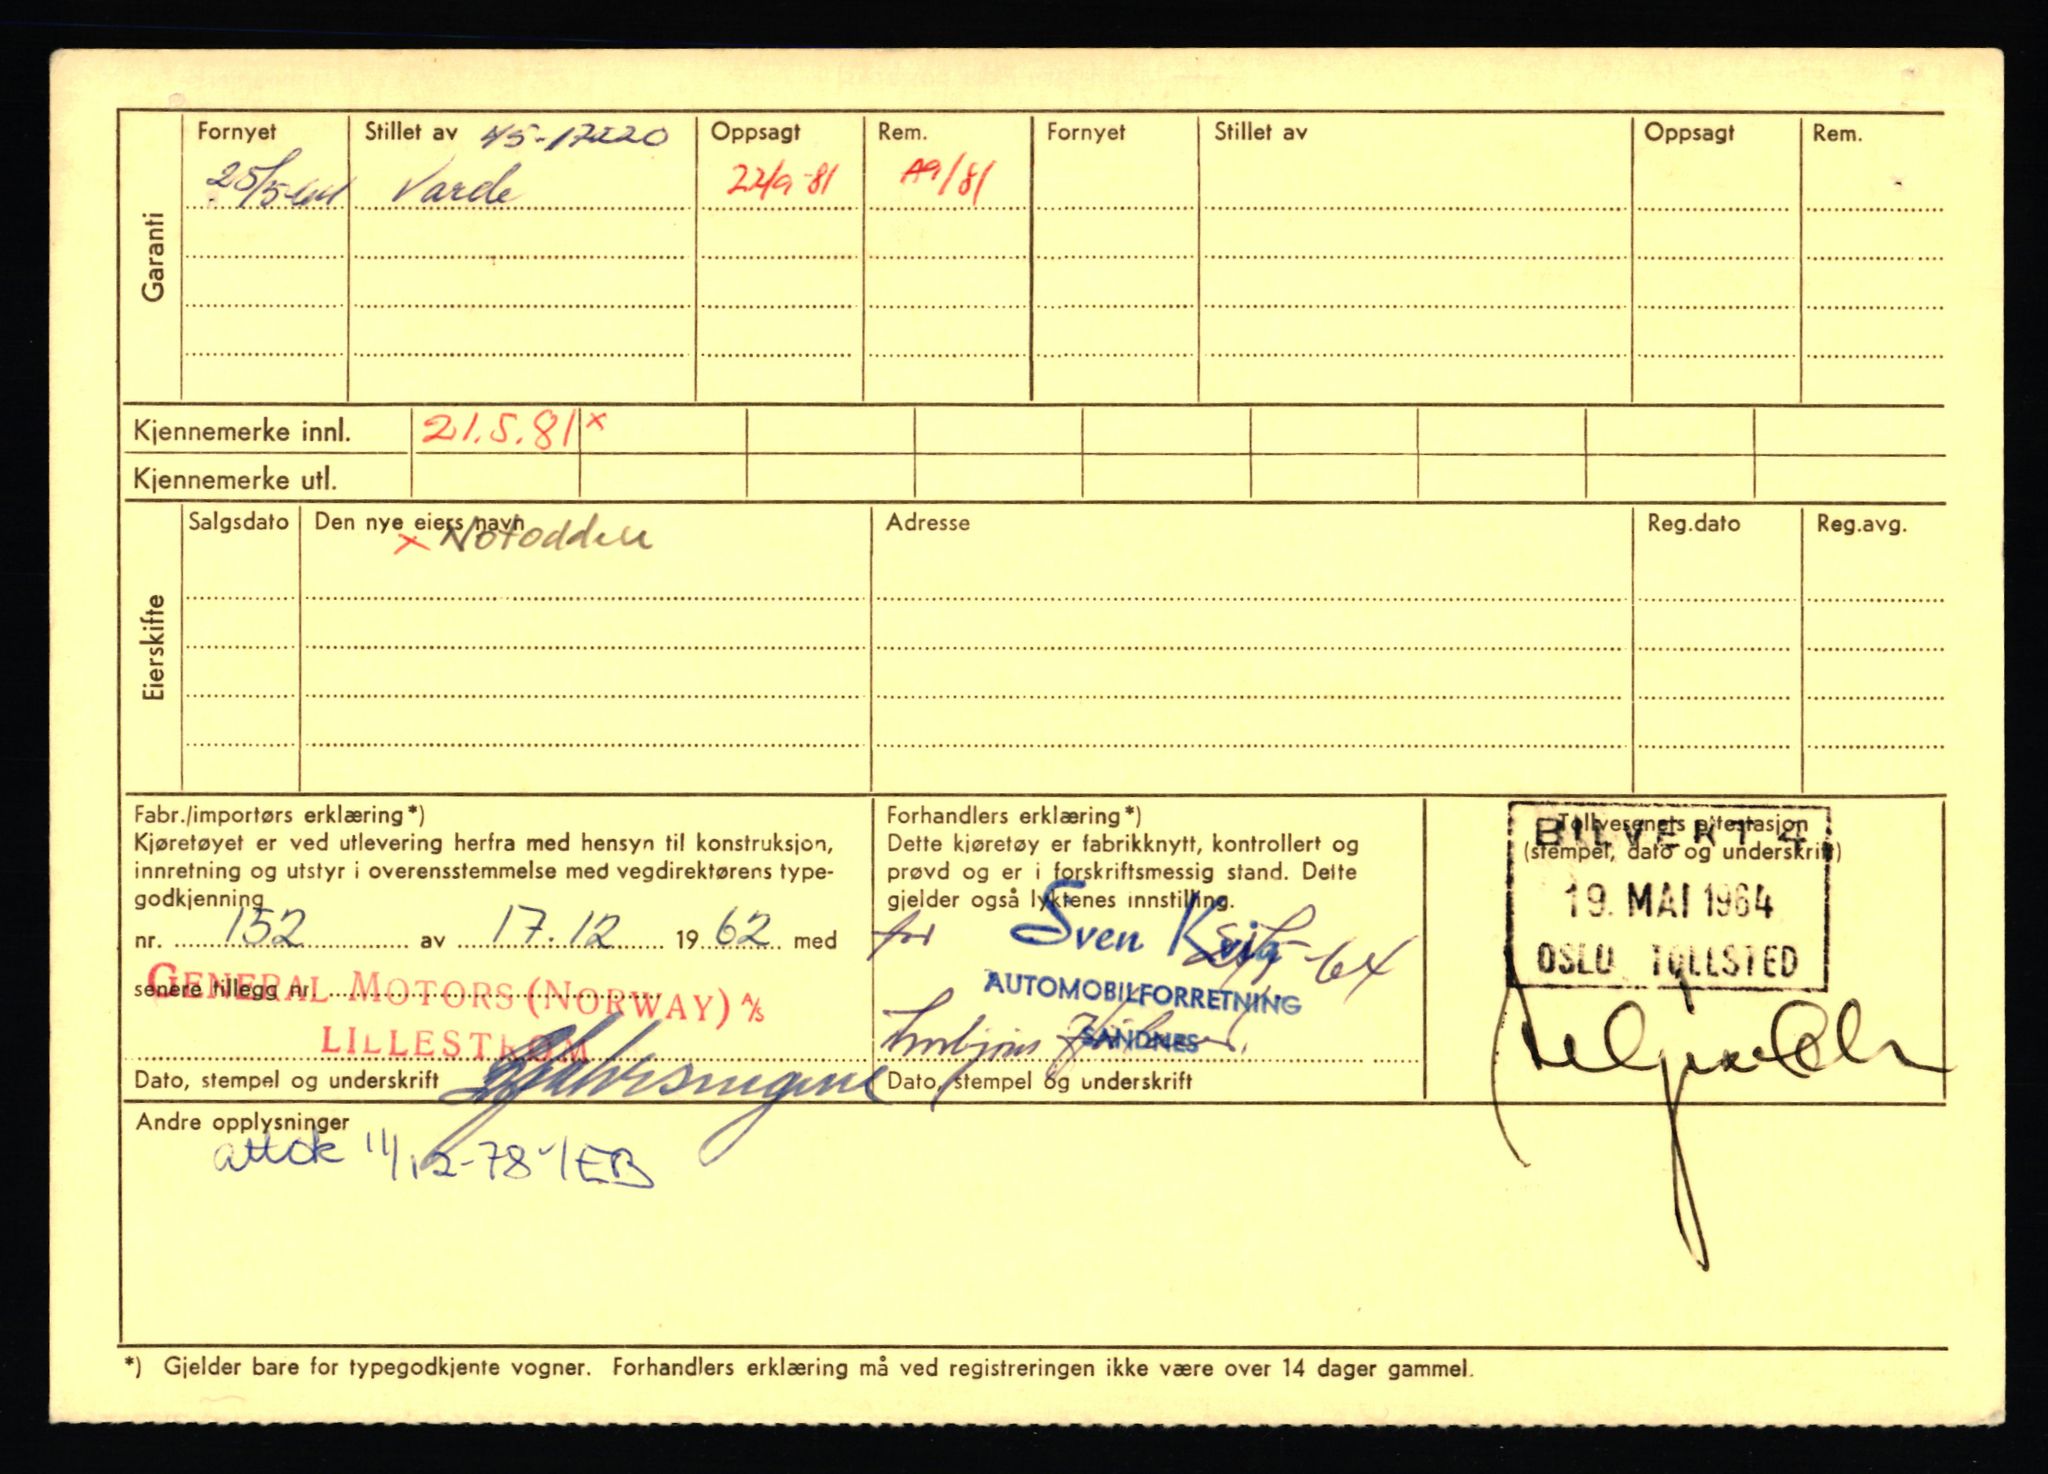 Garanti
Fornyet Stillet av 45-17220 Oppsagt Rem. Fornyet Stillet av Oppsagt Rem.
25/5-64 Varde 22/9-81 A9/81
Kjennemerke innl. 21.5.81 x
Kjennemerke utl.
Eierskifte
Salgsdato Den nye eiers navn Adresse Reg.dato Reg.avg.
x Notodden
Fabr./importørs erklæring*)
Kjøretøyet er ved utlevering herfra med hensyn til konstruksjon,
innretning og utstyr i overensstemmelse med vegdirektørens type-
godkjenning
nr. 152 av 17.12 1962 med
senere tillegg nr.
GENERAL MOTORS (NORWAY) A/S
LILLESTRØM
Dato, stempel og underskrift
Forhandlers erklæring*)
Dette kjøretøy er fabrikknytt, kontrollert og
prøvd og er i forskriftsmessig stand. Dette
gjelder også lyktenes innstilling.
for Sven Kvia
AUTOMOBILFORRETNING
SANDNES
Dato, stempel og underskrift
Tollvesenets attestasjon
(stempel, dato og underskrift)
BILVERT 4
19. MAI 1964
OSLO TOLLSTED
Andre opplysninger
attok 11/12-78-/EB
*) Gjelder bare for typegodkjente vogner. Forhandlers erklæring må ved registreringen ikke være over 14 dager gammel.